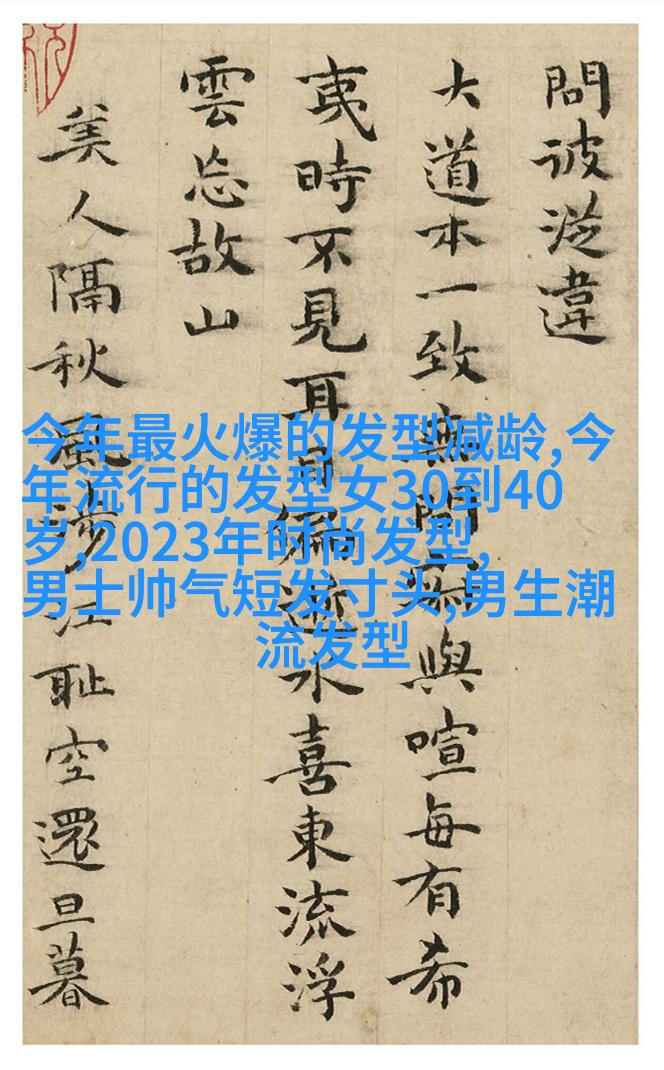 問彼從違
大道本一致無與喧每有希
夷時不見耳目偏逝水喜東流浮
雲忘故山
美人隔秋風涉江耻空還旦暮
今年最火爆的发型减龄,今
年流行的发型女30到40
岁,2023年时尚发型,
男士帅气短发寸头,男生潮
流发型